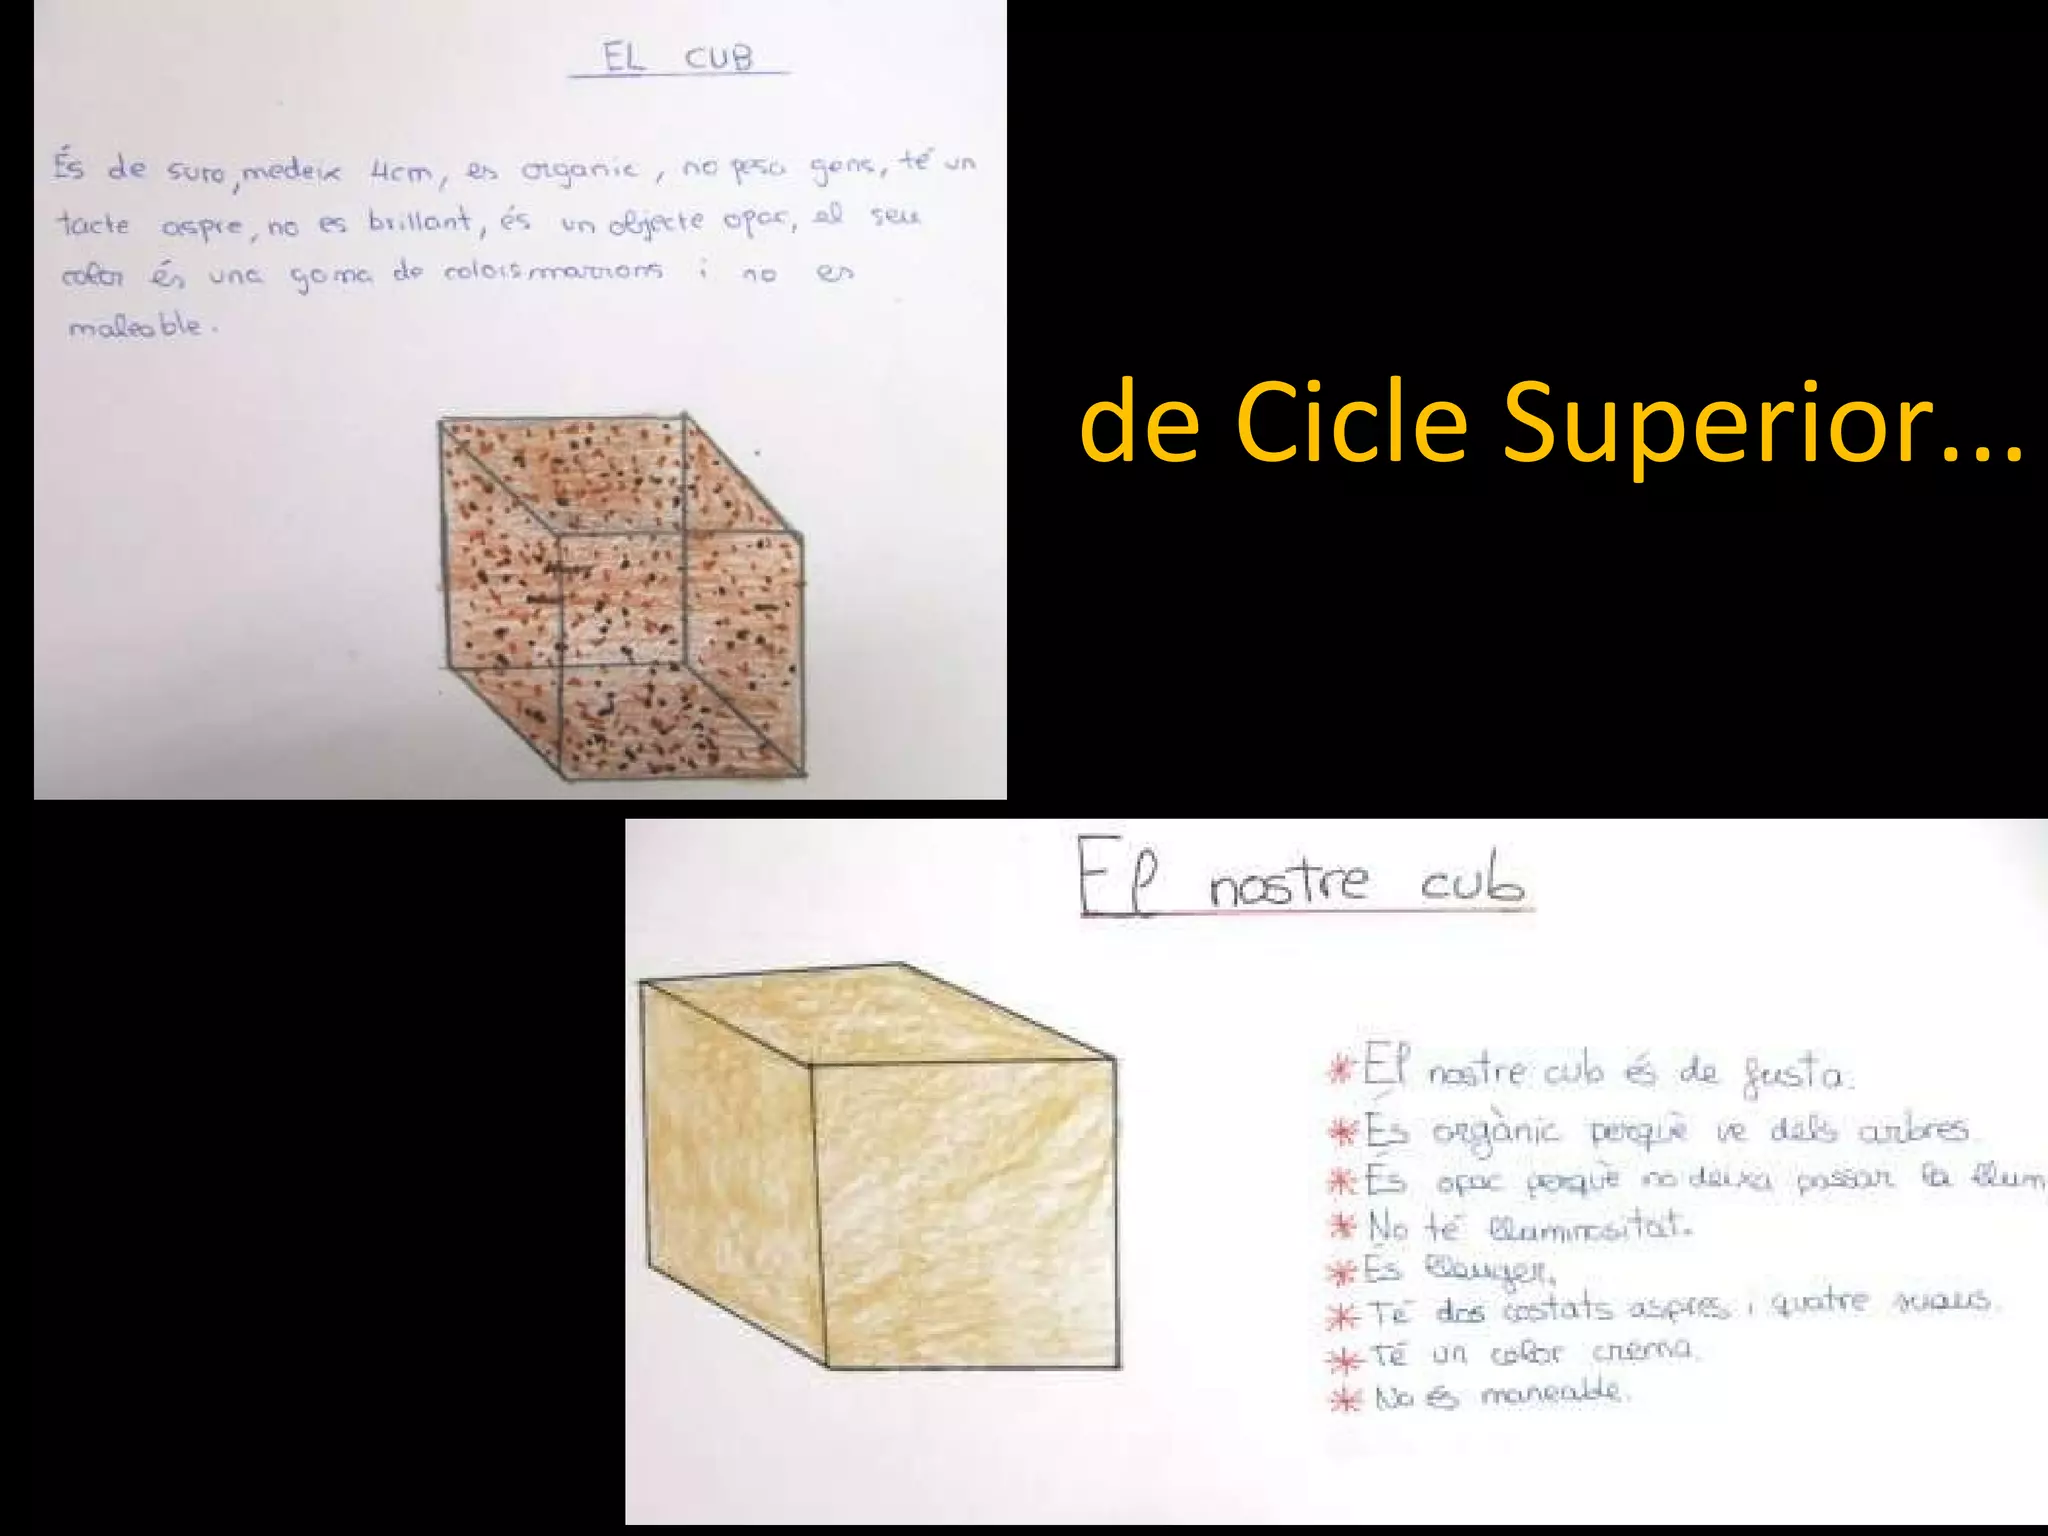 EL CUB
És de suro, medeix 4cm, es organic, no pesa gens, té un
tacte aspre, no es brillant, és un objecte opac, el seu
color és una goma de colors marrons i no es
maleable.
de Cicle Superior...
El nostre cub
* El nostre cub és de fusta.
* És orgànic perquè ve dels arbres.
* És opac perquè no deixa passar la llum
* No té lluminositat.
* És llauger.
* Té dos costats aspres i quatre suaus.
* Té un color crema.
* No és maneable.